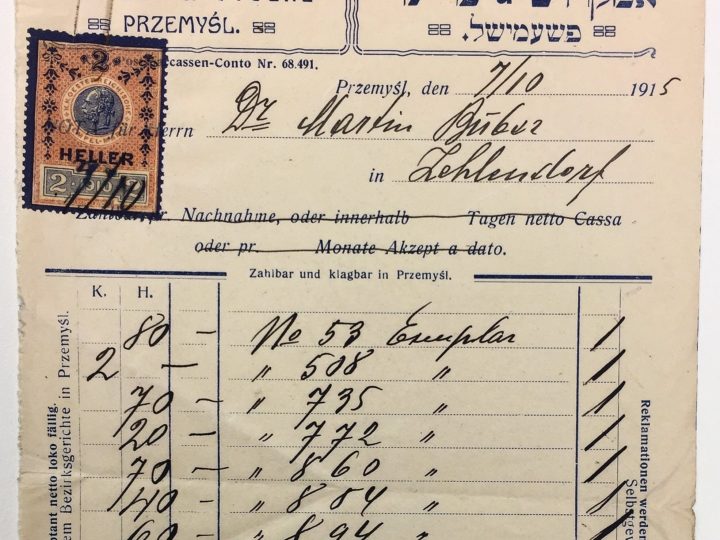 PRZEMYŚL.
פשעמישל.
cassen-Conto Nr. 68.491.
Przemyśl, den 7/10 1915
2
HELLER
2
7/10
für Herrn Dr Martin Buber
in Zehlendorf
pr. Nachnahme, oder innerhalb Tagen netto Cassa
oder pr. Monate Akzept a dato.
Zahlbar und klagbar in Przemyśl.
K. H.
80 — No 53 Exemplar /
2 — „ 508 „ /
70 — „ 735 „ /
20 — „ 772 „ /
70 — „ 860 „ /
40 — „ 884 „ /
60 — „ 894 „ /
ptant netto loko fällig.
em Bezirksgerichte in Przemyśl.
Reklamationen werden